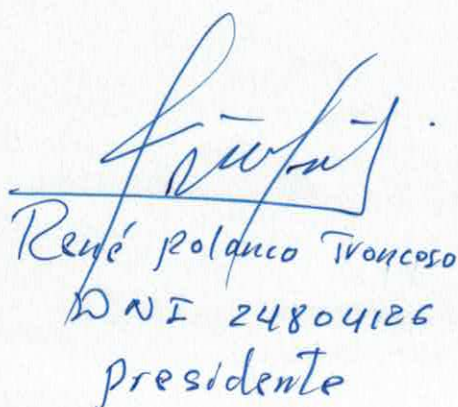 René Polanco Troncoso
DNI 24804126
presidente